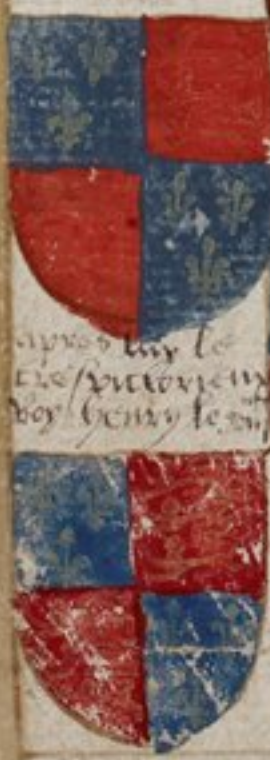 apres luy le
tres victorieux
Roy henry le